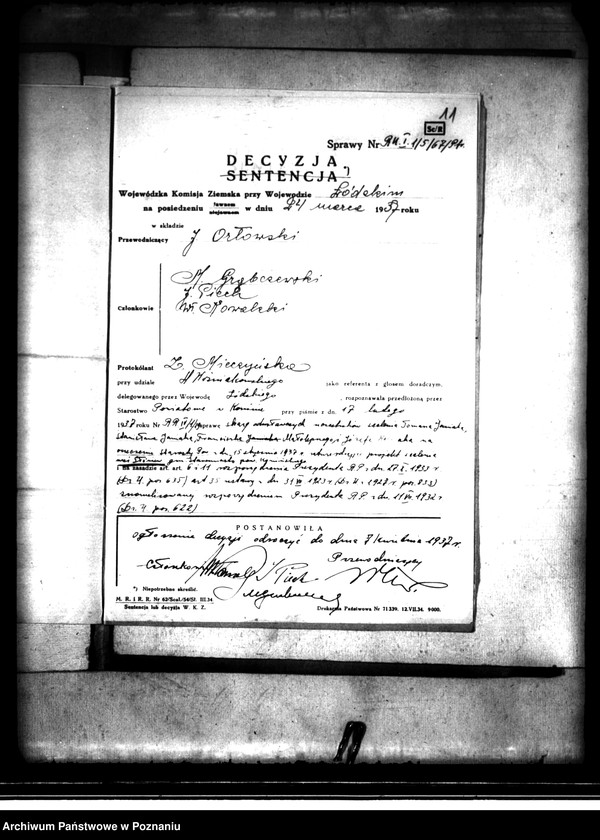 11
Sc/R
Sprawy Nr RU.I.1/5/67/Sk.
DECYZJA
SENTENCJA *)
Wojewódzka Komisja Ziemska przy Wojewodzie Łódzkim
na posiedzeniu jawnem niejawnem w dniu 24 marca 1937 roku
w składzie
Przewodniczący J. Orłowski
M. Grąbczewski
J. Piech
Członkowie Wł. Kowalski
Protokólant Z. Mieczyńska
przy udziale jako referenta z głosem doradczym,
delegowanego przez Wojewodę Łódzkiego, rozpoznawała przedłożoną przez
Starostwo Powiatowe w Koninie przy piśmie z dn. 17 lutego
1937 roku Nr sprawę skarg uczestników scalenia Tomasza Janiaka,
Stanisława Janiaka, Franciszka Janiaka na
orzeczenie Starosty z dn. 15 stycznia 1937 r. zatwierdzające projekt scalenia
wsi gm.
na zasadzie art. art. 6 i 11 rozporządzenia Prezydenta R.P. z dn. 1933 r.
(Dz. U. poz. 635) art 35 ustawy z dn. 31 VII 1923 r. (Dz. U. 1928 r. poz. 833)
znowelizowanej rozporządzeniem Prezydenta R.P. z dn. 11 VII 1932 r.
(Dz. U. poz. 622)
POSTANOWIŁA
ogłoszenie decyzji odroczyć do dnia 7 kwietnia 1937 r.
Przewodniczący
Członkowie Kowalski J. Piech
*) Niepotrzebne skreślić.
M. R. i R. R. Nr 62/Scal./54/Sf. III.34.
Sentencja lub decyzja W. K. Z.
Drukarnia Państwowa Nr 71339. 12.VII.34. 9000.
Archiwum Państwowe w Poznaniu